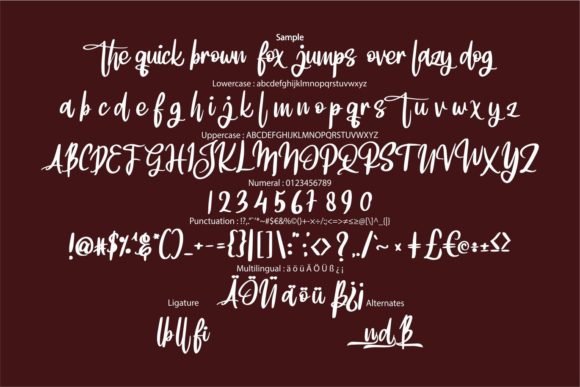 Sample
the quick brown fox jumps over lazy dog
Lowercase : abcdefghijklmnopqrstuvwxyz
a b c d e f g h i j k l m n o p q r s t u v w x y z
Uppercase : ABCDEFGHIJKLMNOPQRSTUVWXYZ
ABCDEFGHIJKLMNOPQRSTUVWXYZ
Numeral : 0123456789
1 2 3 4 5 6 7 8 9 0
Multilingual : ä ö ü Ä Ö Ü ß ¿ ¡
ÄÖÜ äöü ß¿¡
Ligature
Alternates
lb ll fi
n d B